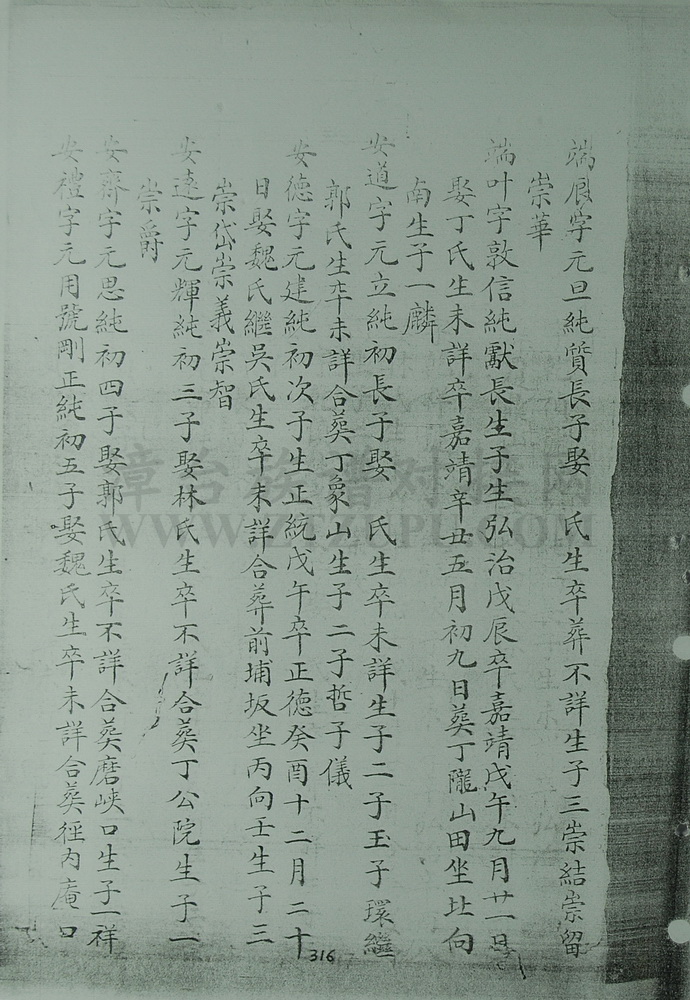 端㫰字元旦純質長子娶　氏生卒葬不詳生子三崇結崇留
崇華
端叶字敦信純獻長生子生弘治戊辰卒嘉靖戊午九月廿一日
娶丁氏生未詳卒嘉靖辛丑五月初九日葬丁隴山田坐北向
南生子一麟
安道字元立純初長子娶　氏生卒未詳生子二子玉子環繼
郭氏生卒未詳合葬丁象山生子二子哲子儀
安德字元建純初次子生正統戊午卒正德癸酉十二月二十
日娶魏氏繼吳氏生卒未詳合葬前埔坂坐丙向壬生子三
崇岱崇義崇智
安遠字元輝純初三子娶林氏生卒不詳合葬丁公院生子一
崇爵
安齋字元思純初四子娶郭氏生卒不詳合葬磨峽口生子一祥
安禮字元用號剛正純初五子娶魏氏生卒未詳合葬徑內庵口
316
漳台族谱对接网